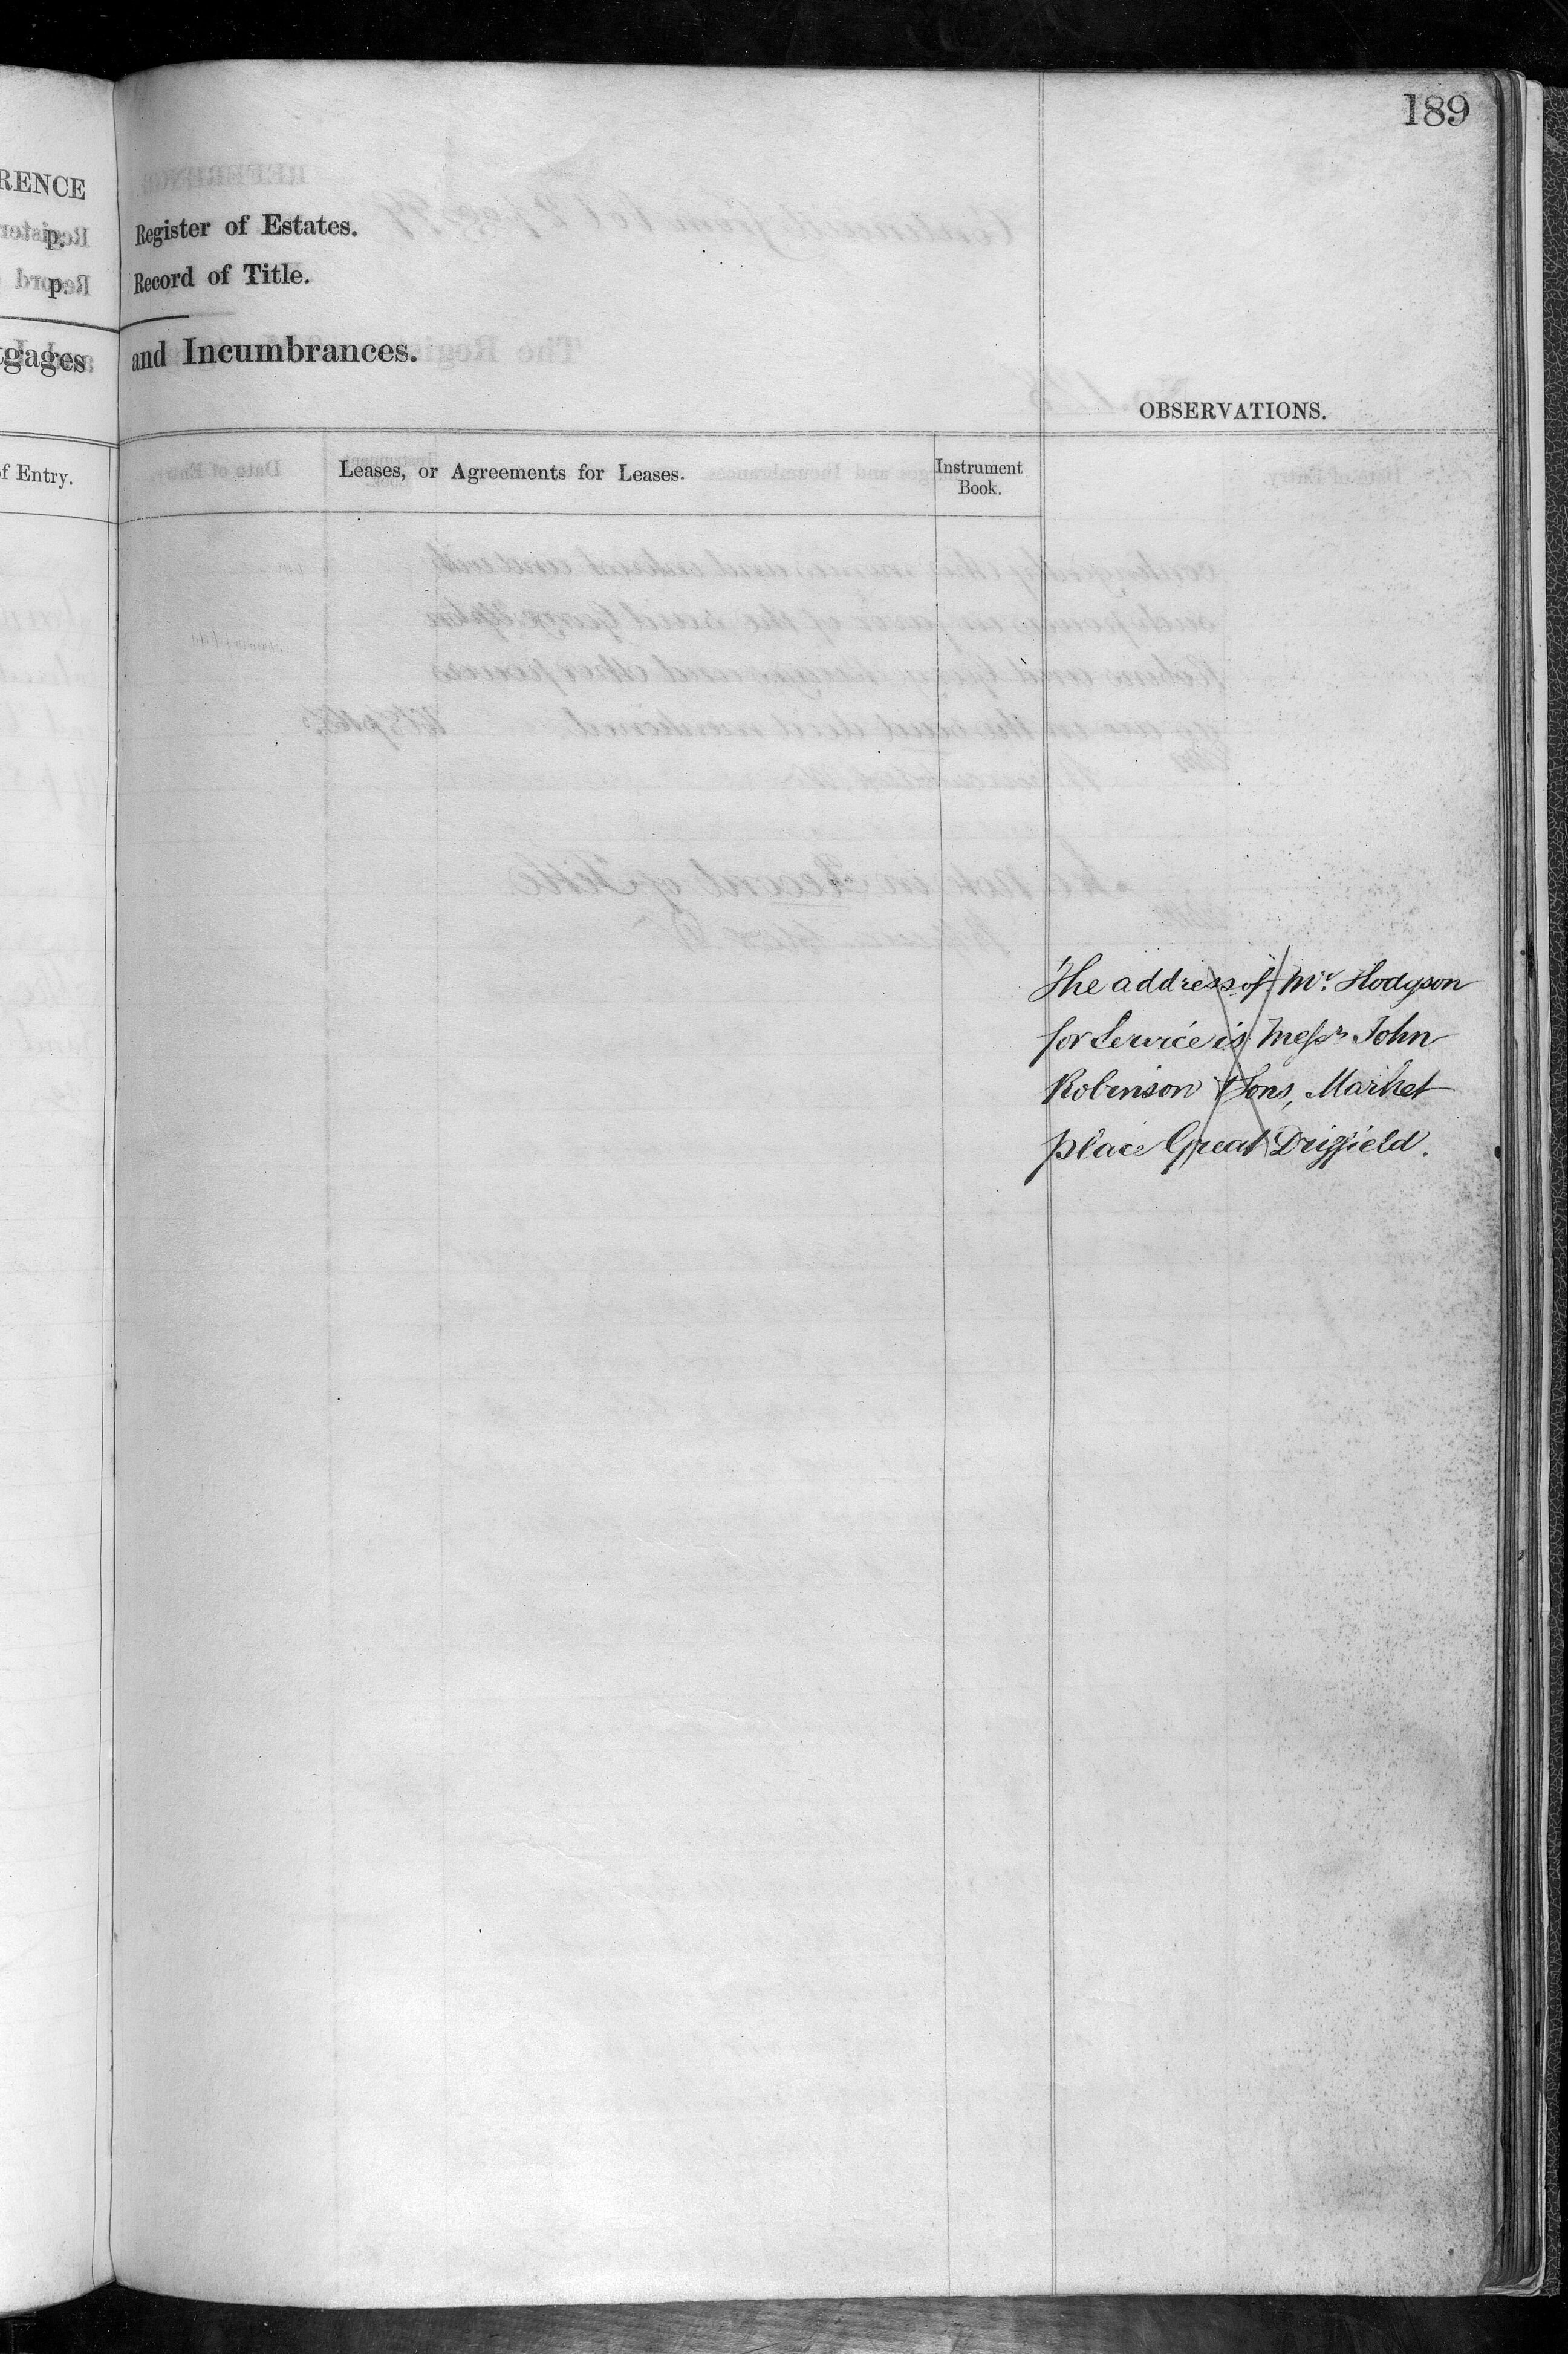 189
RENCE
p.
p.
tgages
f Entry.
Register of Estates.
Record of Title.
and Incumbrances.
OBSERVATIONS.
Leases, or Agreements for Leases.
Instrument
Book.
The address of Mr. Hodgson
for Service is Messrs John
Robinson & Sons, Market
place Great Driffield.